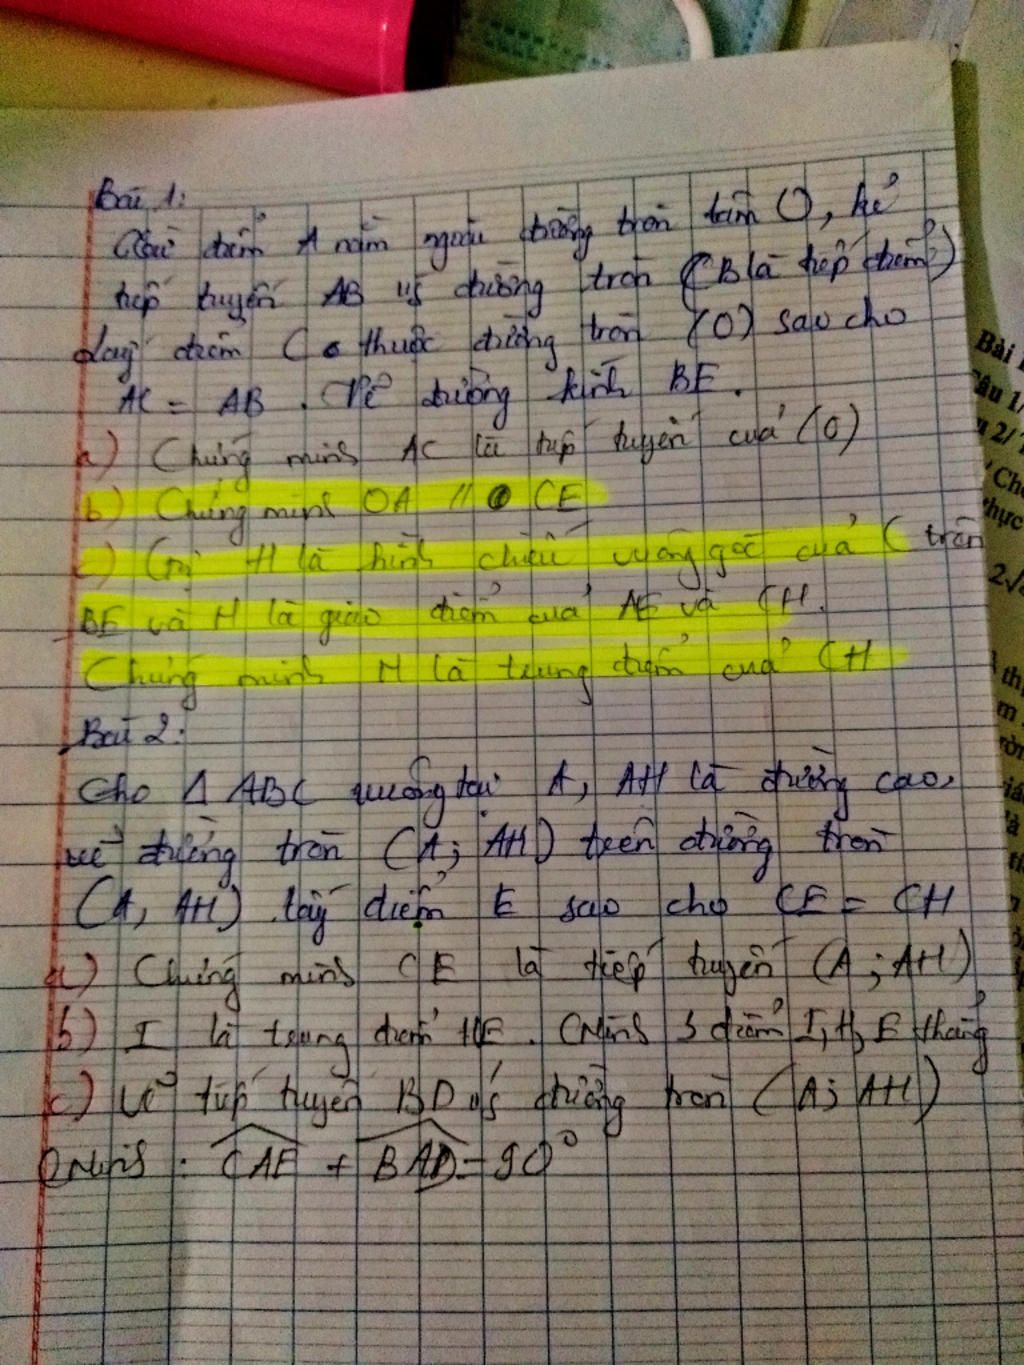 Bài 1:
Cho điểm A nằm ngoài đường tròn tâm O, kẻ
tiếp tuyến AB với đường tròn (B là tiếp điểm)
lấy điểm C thuộc đường tròn (O) sao cho
AC = AB. Vẽ đường kính BE.
a) Chứng minh AC là tiếp tuyến của (O)
b) Chứng minh OA // CE
c) Gọi H là hình chiếu vuông góc của C trên
BE và M là giao điểm của AE và CH.
Chứng minh M là trung điểm của CH
Bài 2:
Cho Δ ABC vuông tại A, AH là đường cao,
vẽ đường tròn (A; AH) trên đường tròn
(A, AH) lấy điểm E sao cho CE = CH
a) Chứng minh CE là tiếp tuyến (A; AH)
b) I là trung điểm HE. CMinh 3 điểm I, H, E thẳng
c) Vẽ tiếp tuyến BD với đường tròn (A; AH)
CMinh: CAE + BAD = 90°
Bài
Câu 1/
2/
Chứ
thức